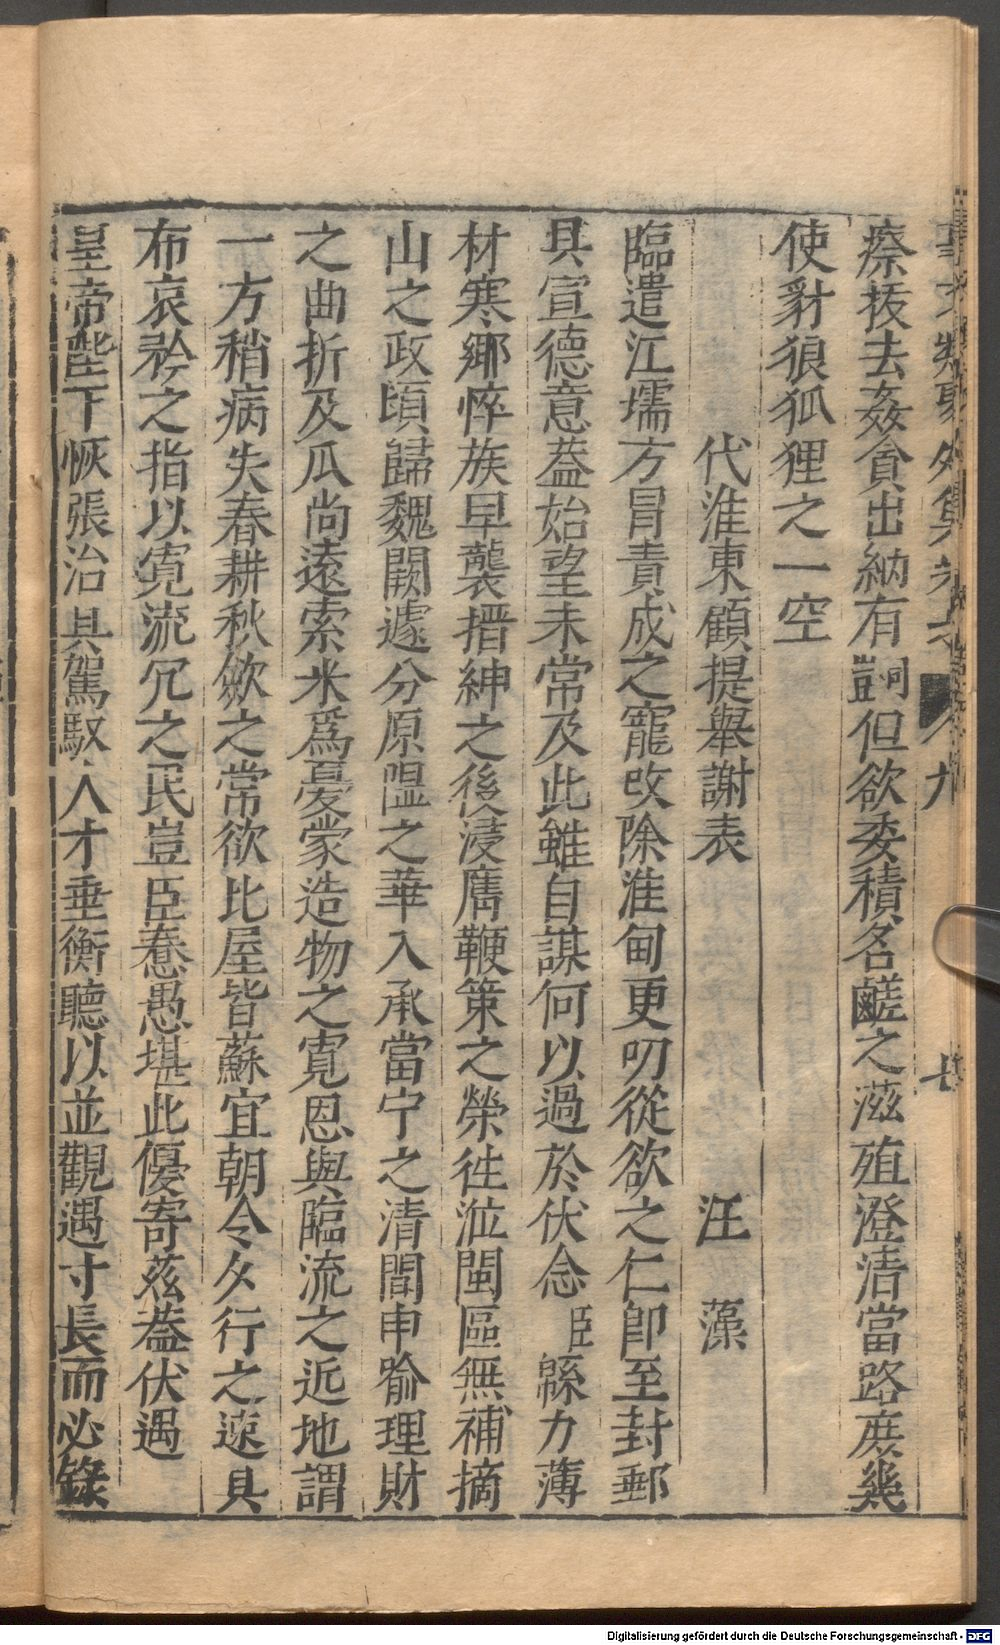 事文類聚外集卷六 九
七
瘵㧞去姦貪出納有詞豈但欲委積名鹺之滋殖澄清當路庻㡬
使豺狼狐狸之一空
代淮東顧提舉謝表 汪 藻
臨遣江壖方冒責成之寵改除淮甸更叨從欲之仁卽至封郵
具宣德意葢始望未常及此雖自謀何以過於伏念臣緜力薄
材寒鄉悴族早襲搢紳之後浸膺鞭策之榮徃涖閩區無補摘
山之政頃歸魏闕遽分原隰之華入承當宁之清閒申喻理財
之曲折及瓜尚遠索米爲憂蒙造物之寛恩與臨流之近地謂
一方稍病失春耕秋歛之常欲比屋皆蘇宜朝令夕行之速具
布哀矜之指以寛流冗之民豈臣惷愚堪此優寄茲葢伏遇
皇帝陛下恢張治具駕馭人才垂衡聽以並觀遇寸長而必錄
Digitalisierung gefördert durch die Deutsche Forschungsgemeinschaft - DFG